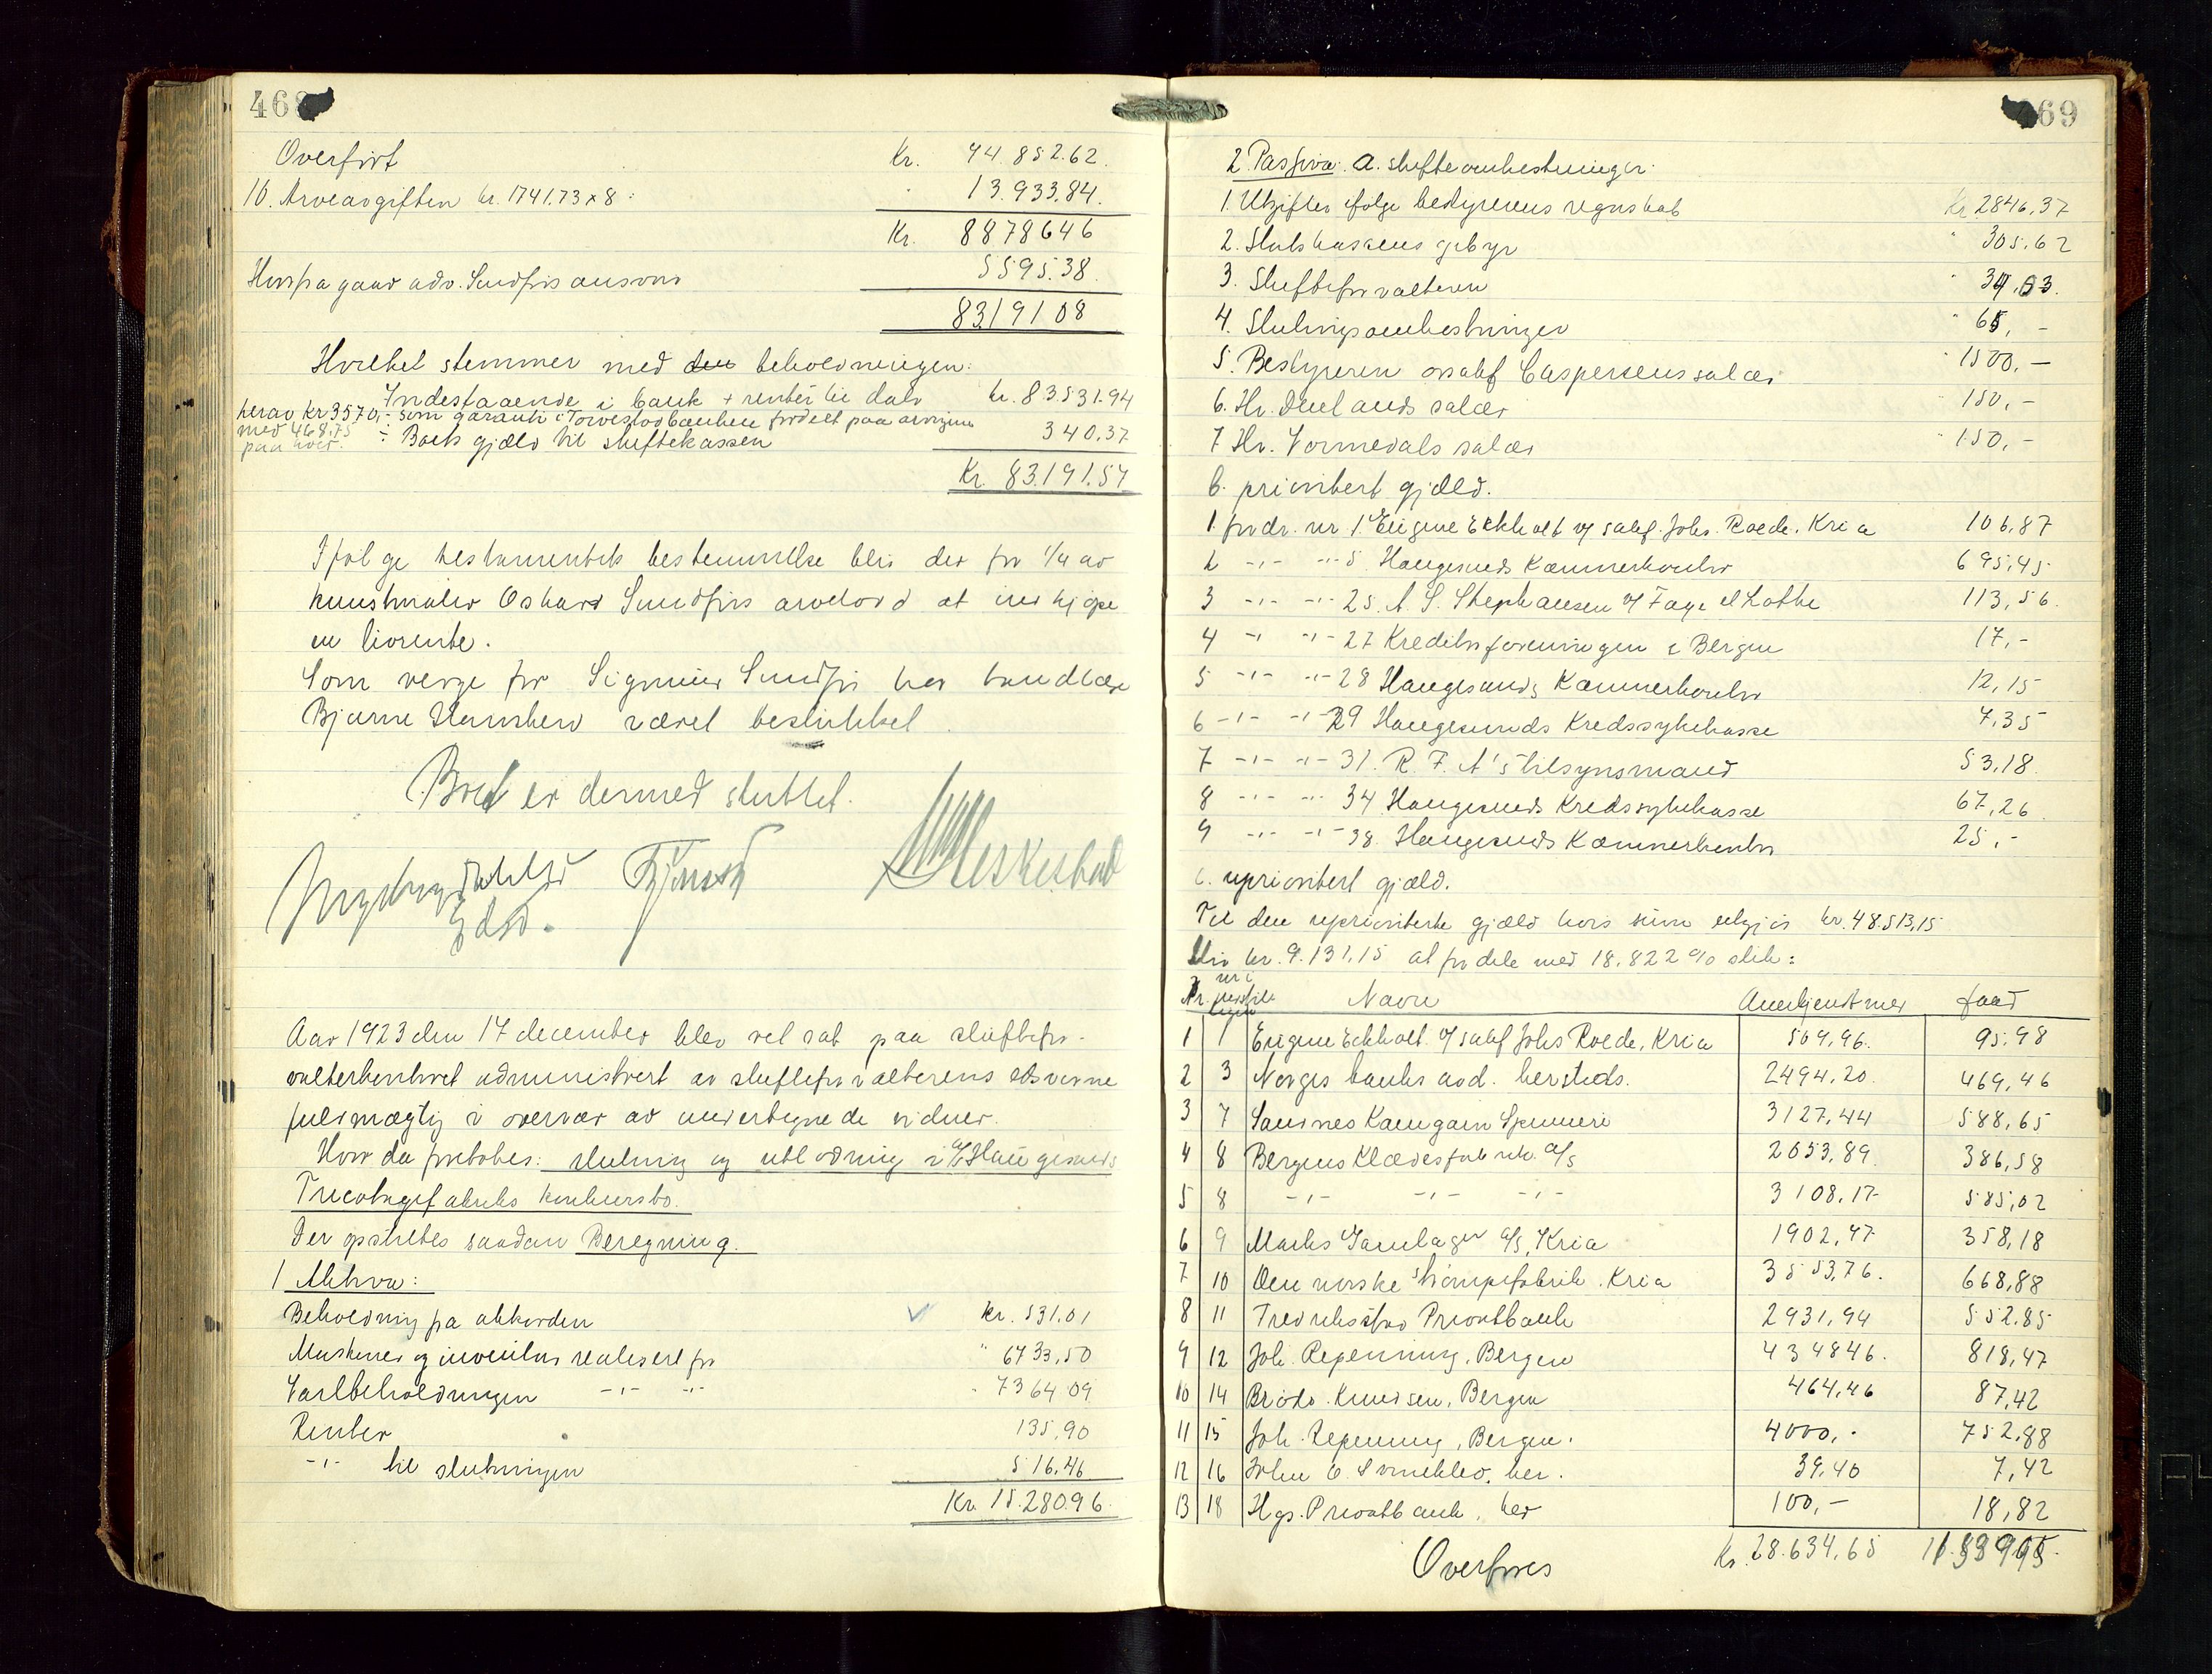 468
Overført Kr. 74.852.62.
10. Arveavgiften kr. 1741.73 x 8: " 13.933.84.
Kr. 8878646
Herpa gaar adv. Sundførs ansvar 5595.38.
8319108
Hvilket stemmer med den beholdningen:
Indestaaende i bank + renter til dato kr. 83531.94
herav Kr 3570,- som garanti i Torvestadbanken fordelt paa arvingene
med 468.75 ÷ Boets gjæld til skiftekassen 340.37
paa hver.
Kr. 83.191.57
Ifølge testamentets bestemmelse blir der for 1/4 av
kunstmaler Oskar Sundførs arvelodd at indkjøpe
en livrente.
Som verge for Sigmund Sundfør har tandlæge
Bjarne Hernberg været beskikket.
Boet er dermed sluttet.
Aar 1923 den 17 december blev ret sat paa skiftefor-
valterkontoret administrert av skifteforvalterens edsvorne
fuldmægtig i overvær av undertegnede vidner.
Hvor da foretokes: slutning og utlodning i A/S Haugesunds
Tricotagefabriks konkursbo.
Der opstilles saadan Beregning.
1 Aktiva:
Beholdning pa akkorden ✓ kr. 531.01
Maskiner og inventar realisert for " 6733,50
Varebeholdningen -"- -"- " 7364 09
Renter 135,90
-"- til slutningen 516,46
Kr. 15.280.96.
69
2. Passiva: a. skifteomkostninger:
1. Utgifter ifølge bestyrerens regnskab Kr 2846,37
2. Statskassens gebyr " 305.62
3. Skifteforvalteren " 34,03.
4. Slutningsomkostninger " 65, -
5. Bestyreren o.r.sakf Caspersens salær " 1500,-
6. Hr. Duelands salær 150,-
7 Hr. Vormedals salær " 150,-
b. prioritert gjæld.
1. fordr. nr. 1. Eugine Eckholt v/ sakf. Johs. Roede. Kria 106,87
2 -"- -"- 5. Haugesunds Kæmnerkontor 695,45
3 -"- -"- 25. A. S. Stephansen v/ Faye & Lothe 113,56.
4 -"- -"- 27 Kreditorforeningen i Bergen 17,-
5 -"- -"- 28 Haugesunds Kæmnerkontor 12,15
6 -"- -"- 29 Haugesunds Kredssykekasse 7,35
7 -"- -"- 31. R. F. A's tilsynsmand 53,18
8 -"- -"- 34 Haugesunds Kredssykekasse 67,26
9 -"- -"- 38. Haugesunds Kæmnerkontor 25,-
c. uprioritert gjæld.
Til den uprioriterte gjæld hvis sum utgjør kr. 48.513,15
blir kr. 9.131.15 at fordele med 18.822 % slik:
Nr. nr i Navn Anerkjendt med faar
1 1 Eugine Eckholt v/ sakf Johs Roede, Kria 509,96. 95,98
2 3 Norges bank avd. hersteds. 2494,20. 469,46
3 7 Sandnes Kamgarn Spinneri 3127,44 588,65
4 8 Bergens Klædesfabrik a/s 2053,89. 386,58
5 8 -"- -"- -"- 3108,17- 585,02
6 9 Marks Garnlager a/s, Kria 1902,97 358,18
7 10 Den norske strømpefabrik. Kria 3553,76. 668,88
8 11 Fredriksstad Privatbank 2931,94 552,85
9 12 Joh. Repenning, Bergen 434846. 818,47
10 14 Brødr. Knudsen, Bergen 464,46 87,42
11 15 Joh. Repenning, Bergen. 4000,- 752,88
12 16 39,40 7,42
13 18 Hgs. Privatbank, her 100,- 18,82
Overføres Kr. 28.634,65